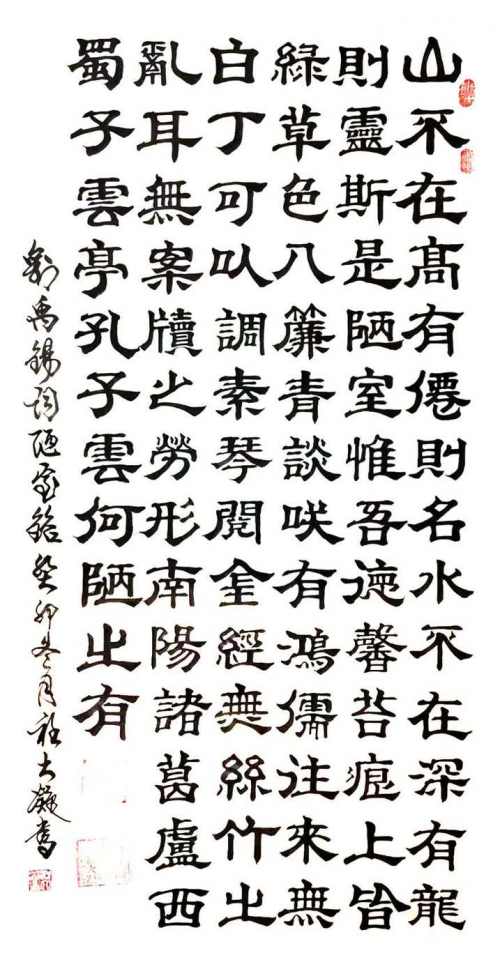 山不在髙有僊則名水不在深有龍
則靈斯是陋室惟吾德馨苔痕上皆
綠草色入簾青談咲有鴻儒往來無
白丁可以調素琴閱金經無絲竹之
亂耳無案牘之勞形南陽諸葛盧西
蜀子雲亭孔子雲何陋之有
劉禹錫詞陋室銘癸卯冬月大凝書